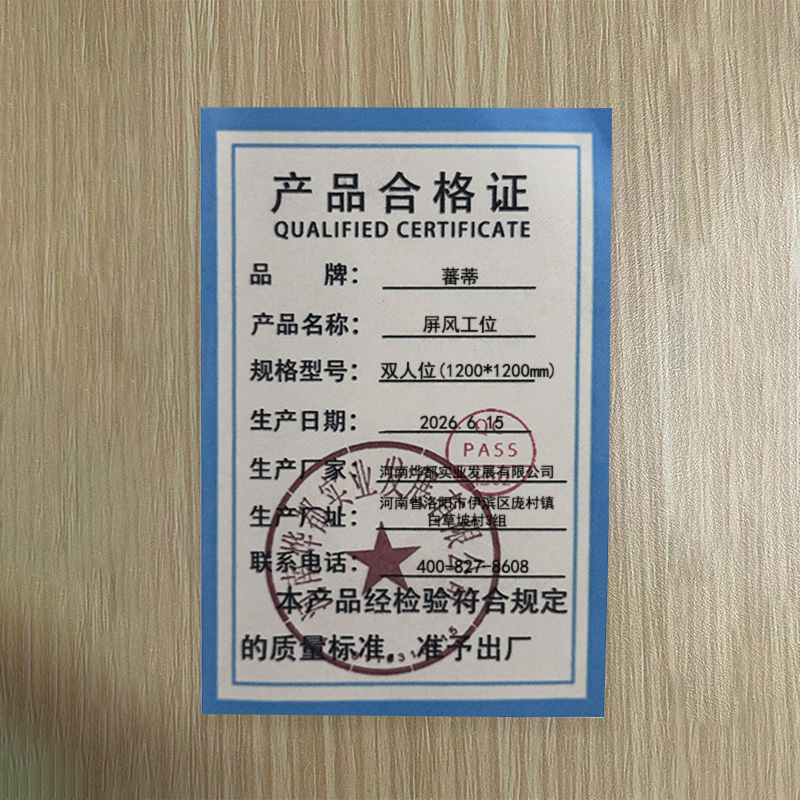 产品合格证
QUALIFIED CERTIFICATE
品 牌： 蕃蒂
产品名称： 屏风工位
规格型号： 双人位(1200*1200mm)
生产日期： 2026.6.15
PASS
生产厂家： 河南烨都实业发展有限公司
生产厂址： 河南省洛阳市伊滨区庞村镇
白草坡村3组
联系电话： 400-827-8608
本产品经检验符合规定
的质量标准。准予出厂
河南烨都实业发展有限公司